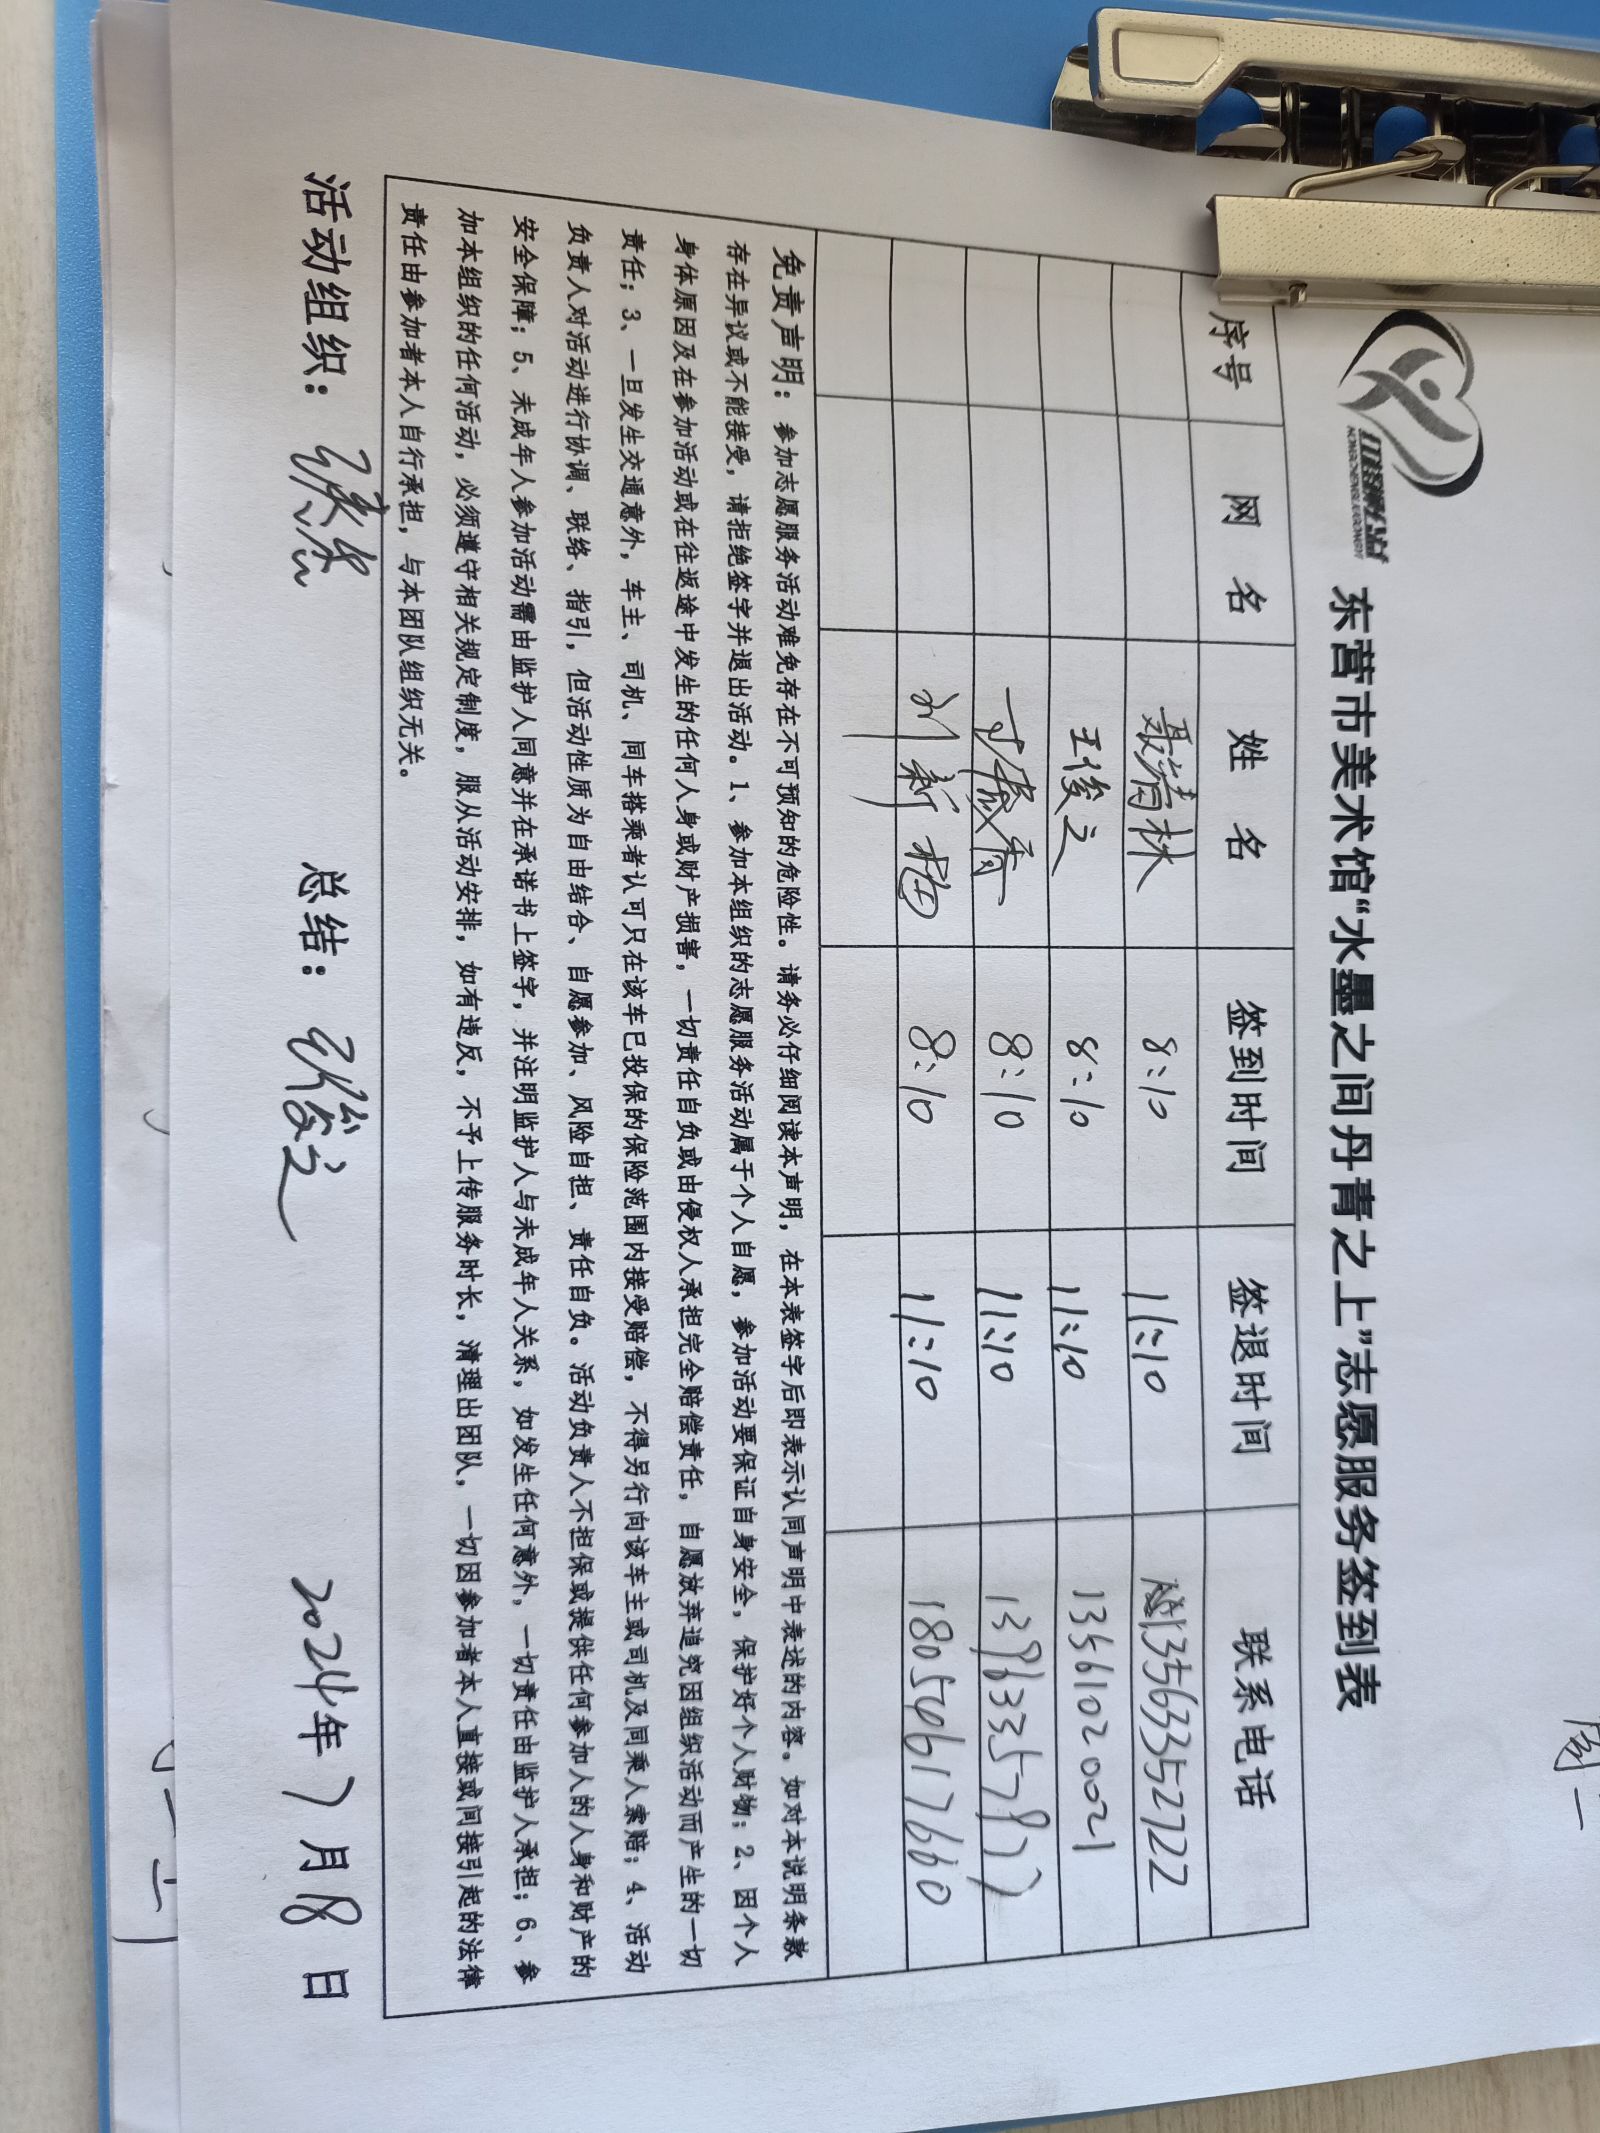 周一
东营市美术馆“水墨之间丹青之上”志愿服务签到表
序号 网 名 姓 名 签到时间 签退时间 联系电话
聂清林 8:10 11:10 13563352722
王俊之 8:10 11:10 13561020021
8:10 11:10
刘新梅 8:10 11:10 18054617660
免责声明：参加志愿服务活动难免存在不可预知的危险性。请务必仔细阅读本声明，在本表签字后即表示认同声明中表述的内容。如对本说明条款
存在异议或不能接受，请拒绝签字并退出活动。1、参加本组织的志愿服务活动属于个人自愿，参加活动要保证自身安全，保护好个人财物；2、因个人
身体原因及在参加活动或在往返途中发生的任何人身或财产损害，一切责任自负或由侵权人承担完全赔偿责任，自愿放弃追究因组织活动而产生的一切
责任；3、一旦发生交通意外，车主、司机、同车搭乘者认可只在该车已投保的保险范围内接受赔偿，不得另行向该车主或司机及同乘人索赔；4、活动
负责人对活动进行协调、联络、指引，但活动性质为自由结合、自愿参加、风险自担、责任自负。活动负责人不担保或提供任何参加人的人身和财产的
安全保障；5、未成年人参加活动需由监护人同意并在承诺书上签字，并注明监护人与未成年人关系，如发生任何意外，一切责任由监护人承担；6、参
加本组织的任何活动，必须遵守相关规定制度，服从活动安排，如有违反，不予上传服务时长，清理出团队，一切因参加者本人直接或间接引起的法律
责任由参加者本人自行承担，与本团队组织无关。
活动组织： 总结： 2024年7月8日